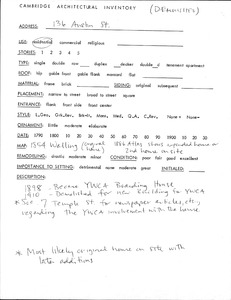 CAMBRIDGE ARCHITECTURAL INVENTORY (DEMOLISHED)
ADDRESS: 136 Austin St.
USE: residential commercial religious
STORIES: 1 2 3 4 5
TYPE: single double row duplex decker double d tenement apartment
ROOF: hip gable front gable flank mansard flat
MATERIAL: frame brick SIDING: original subsequent
PLACEMENT: narrow to street broad to street square
ENTRANCE: flank front side front center
STYLE:
ORNAMENT: little moderate elaborate
DATE 1790 1800 10 20 30 40 50 60 70 80 90 1900 10 20 30 40
MAP: 1854 Walling (original home) 1886 Atlas shows expanded home or 2nd home on site
REMODELLING: drastic moderate minor CONDITION: poor fair good excellent
IMPORTANCE TO SETTING: detrimental none moderate great INITIALED:
DESCRIPTION:
1898 - Became YWCA Boarding House
1910 - Demolished for new building to YWCA
* See 7 Temple St. for newspaper articles, etc.,
regarding the YWCA involvement with the house.
* Most likely original home on site with
later additions